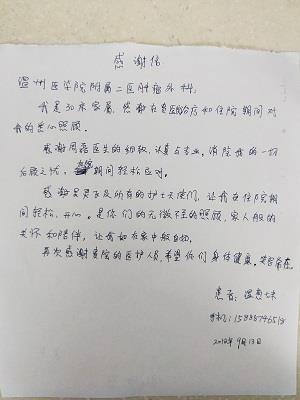 感谢信
温州医学院附属二医肿瘤外科:
我是30床家属, 感谢在贵医治疗和住院期间对
我的悉心照顾。
感谢周磊医生的细致, 认真与专业。消除我的一切
后顾之忧, 住院期间轻松应对。
感谢吴及所有的护士天使们, 让我在住院期
间轻松、开心。是你们的无微不至的照顾, 家人般的
关怀和陪伴, 让我如在家中般自如。
再次感谢贵院的医护人员, 希望你们身体健康。笑容常在。
患者: 温
手机: 15888746518
2018年9月13日